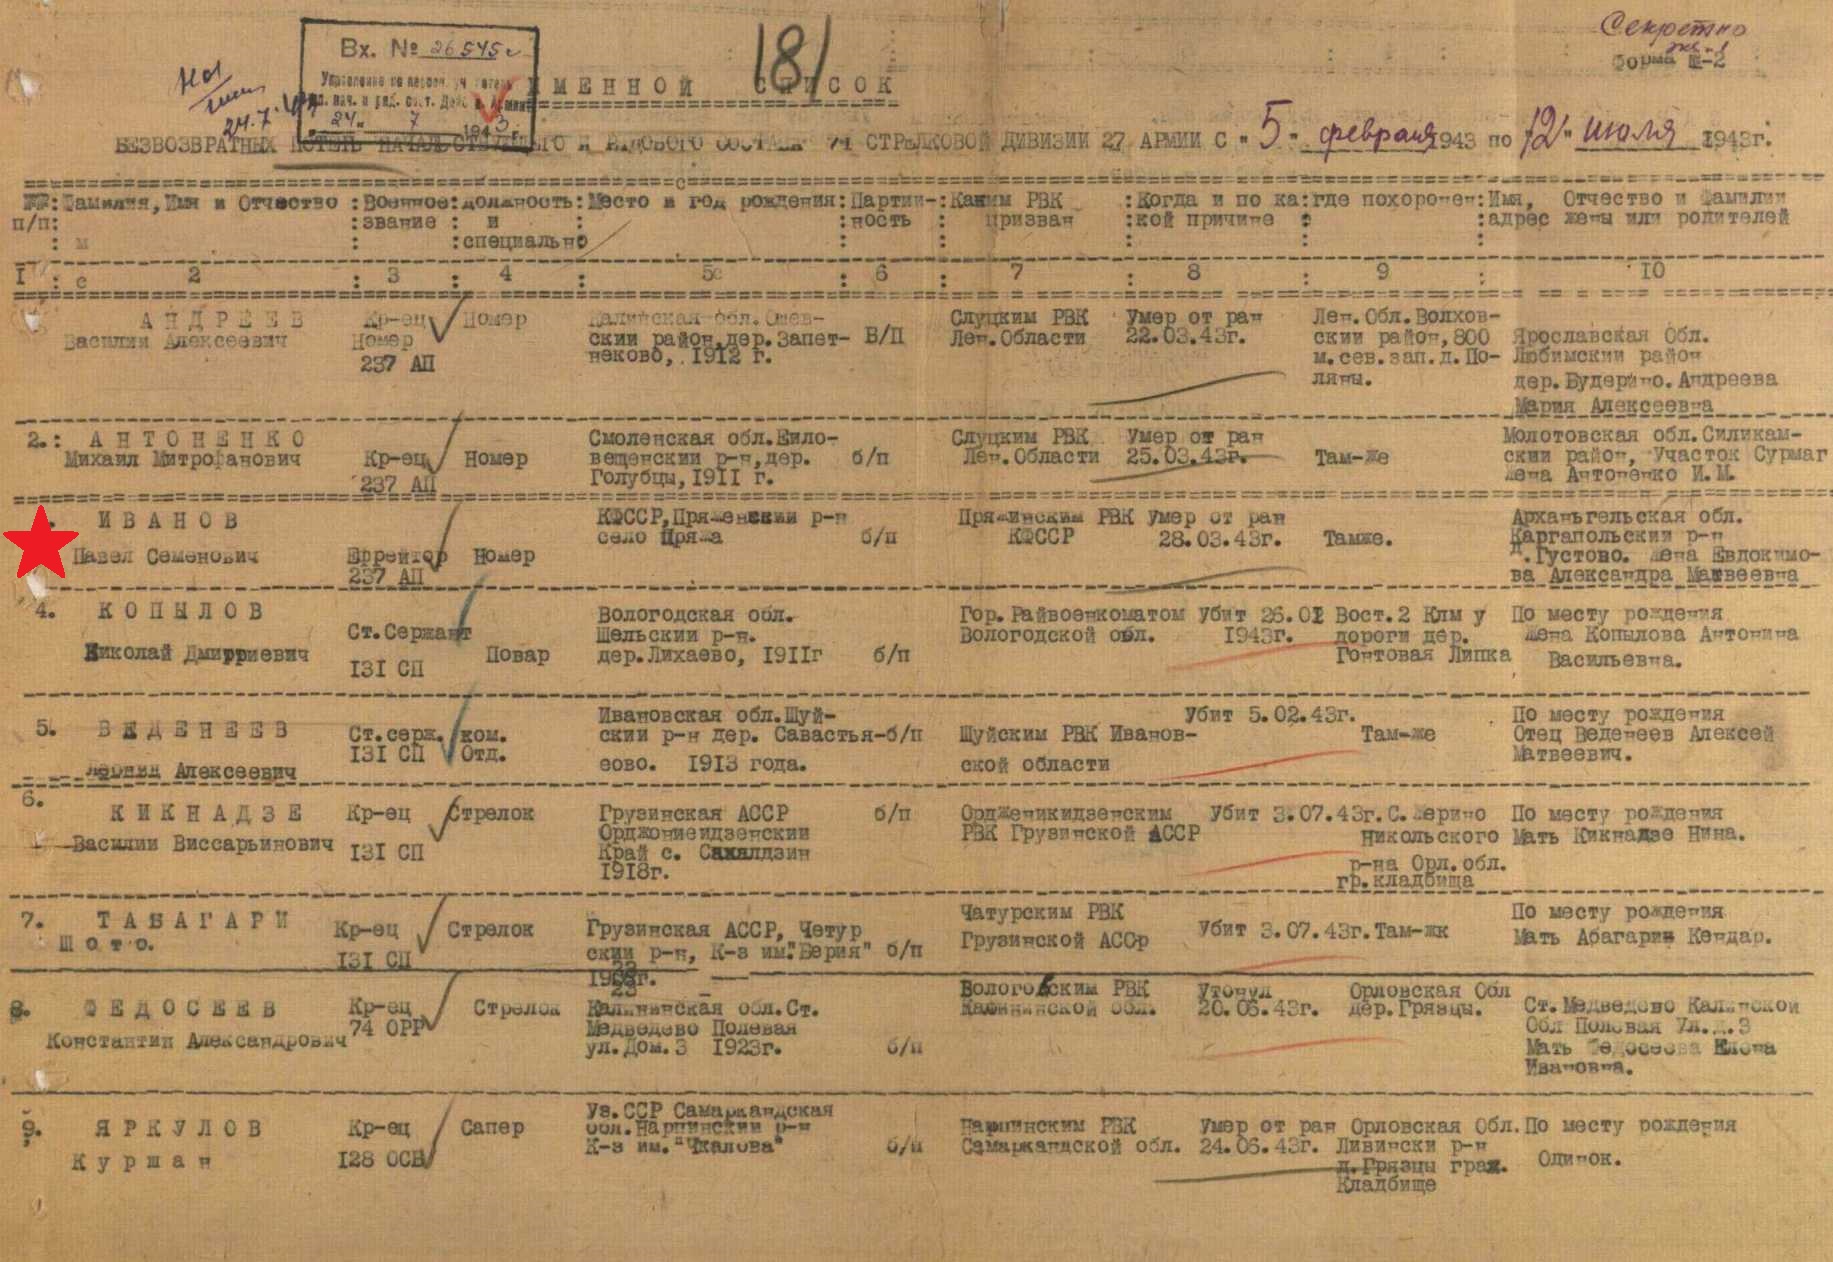 Секретно
экз-1
Форма №-2
Вх. № 26545с
181
На
24.7.
Управление по персон. уч. потерь
нач. и ряд. сост. Дейст. Армии
"24" 7 1943 г.
ИМЕННОЙ СПИСОК
БЕЗВОЗВРАТНЫХ ПОТЕРЬ НАЧАЛЬСТВУЮЩЕГО И РЯДОВОГО СОСТАВА 74 СТРЕЛКОВОЙ ДИВИЗИИ 27 АРМИИ С "5" февраля 1943 по "12" июля 1943г.
№№ п/п: Фамилия, Имя и Отчество : Военное звание : должность и специально : Место и год рождения : Партийность : Каким РВК призван : Когда и по какой причине : где похоронен : Имя, Отчество и Фамилии адрес жены или родителей
I : 2 : 3 : 4 : 5 : 6 : 7 : 8 : 9 : 10
АНДРЕЕВ Кр-ец Номер Калинская обл. Ошев- Слуцким РВК Умер от ран Лен. Обл. Волхов-
Василий Алексеевич Номер ский район, дер. Запет- В/П Лен. Области 22.03.43г. ский район, 800 Ярославская Обл.
237 АП неково, 1912 г. м. сев. зап. д. По- Любимский район
ляны. дер. Будерино. Андреева
Мария Алексеевна
2.: АНТОНЕНКО Смоленская обл. Еило- Слуцким РВК Умер от ран Молотовская обл. Силикам-
Михаил Митрофанович Кр-ец Номер вещенский р-н, дер. б/п Лен. Области 25.03.43г. Там-же ский район, Участок Сурмаг
237 АП Голубцы, 1911 г. жена Антоненко И.М.
ИВАНОВ КФССР, Пряженский р-н Пряжинским РВК Умер от ран Арханьгельская обл.
село Пряжа б/п КФССР 28.03.43г. Тамже. Каргапольский р-н
Павел Семенович Ефрейтор Номер д. Густово. жена Евдокимо-
237 АП ва Александра Матвеевна
4. КОПЫЛОВ Вологодская обл. Гор. Райвоенкоматом Убит 26.01 Вост. 2 Клм у По месту рождения
Ст. Сержант Шельский р-н. Вологодской обл. 1943г. дороги дер. жена Копылова Антонина
Николай Дмирриевич Повар дер. Лихаево, 1911г б/п Гонтовая Липка Васильевна.
131 СП
5. ВЕДЕНЕЕВ Ивановская обл. Шуй- Убит 5.02.43г. По месту рождения
Ст. серж. ком. ский р-н дер. Савастья- б/п Шуйским РВК Иванов- Там-же Отец Веденеев Алексей
131 СП Отд. еово. 1913 года. ской области Матвеевич.
Леонид Алексеевич
6. КИКНАДЗЕ Кр-ец Стрелок Грузинская АССР б/п Ордженикидзенским Убит 3.07.43г. С. Жерино По месту рождения
Орджониеидзенский РВК Грузинской АССР Никольского Мать Кикнадзе Нина.
Василий Виссарьинович 131 СП Край с. Сахалдзин р-на Орл. обл.
1918г. гр. кладбища
7. ТАБАГАРИ Чатурским РВК По месту рождения
Шото. Кр-ец Стрелок Грузинская АССР, Четур Грузинской АССр Убит 3.07.43г. Там-жк Мать Абагарин Кендар.
131 СП ский р-н, К-з им. "Берия" б/п
23
8. ФЕДОСЕЕВ Кр-ец Стрелок Калининская обл. Ст. Вологовским РВК утонул Орловская Обл Ст. Медведево Калинской
74 ОРР Медведево Полевая Калининской обл. 20.06.43г. дер. Грязцы. Обл Полевая Ул. д. 3
Константин Александрович ул. Дом. 3 1923г. б/п Мать Федосеева Елена
Ивановна.
9. ЯРКУЛОВ Кр-ец Сапер Уз. ССР Самаркандская Нарпинским РВК Умер от ран Орловская Обл. По месту рождения
обл. Нарпинский р-н Самаркандской обл. 24.06.43г. Ливински р-н
Куршан 128 ОСБ К-з им. "Чкалова" б/п д. Грязцы граж. Одинок.
Кладбище